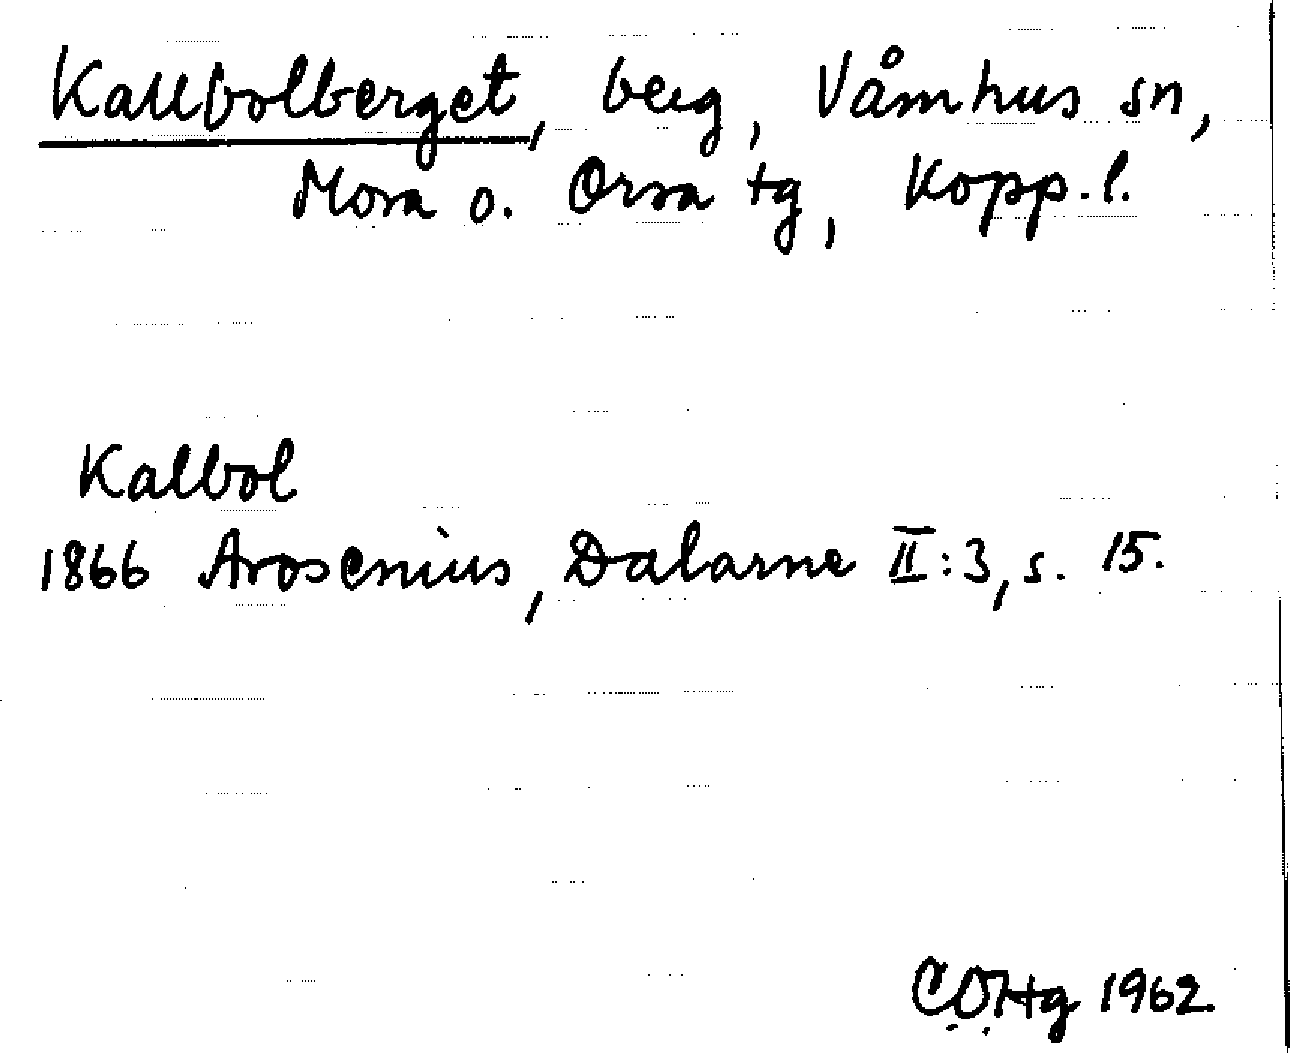 Kallbolberget, berg, Våmhus sn,
Mora o. Orsa tg, Kopp. l.
Kallbol
1866 Arosenius, Dalarne II:3, s. 15.
1962